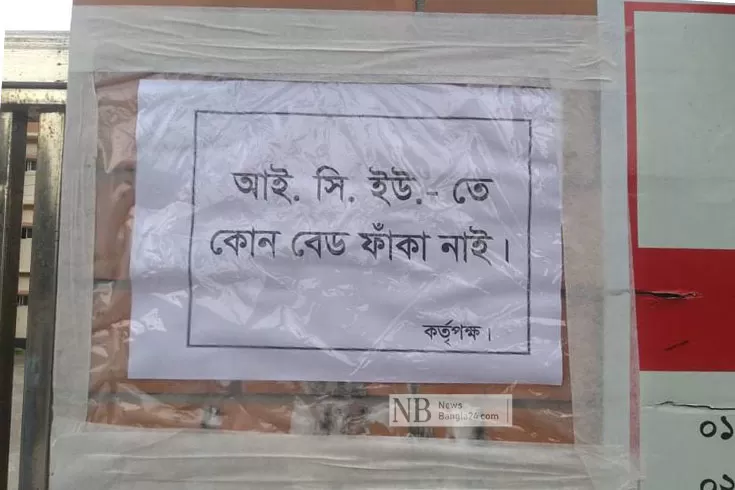 আই. সি. ইউ.- তে
কোন বেড ফাঁকা নাই।
কর্তৃপক্ষ।
NB News
Bangla24.com
০১
০২